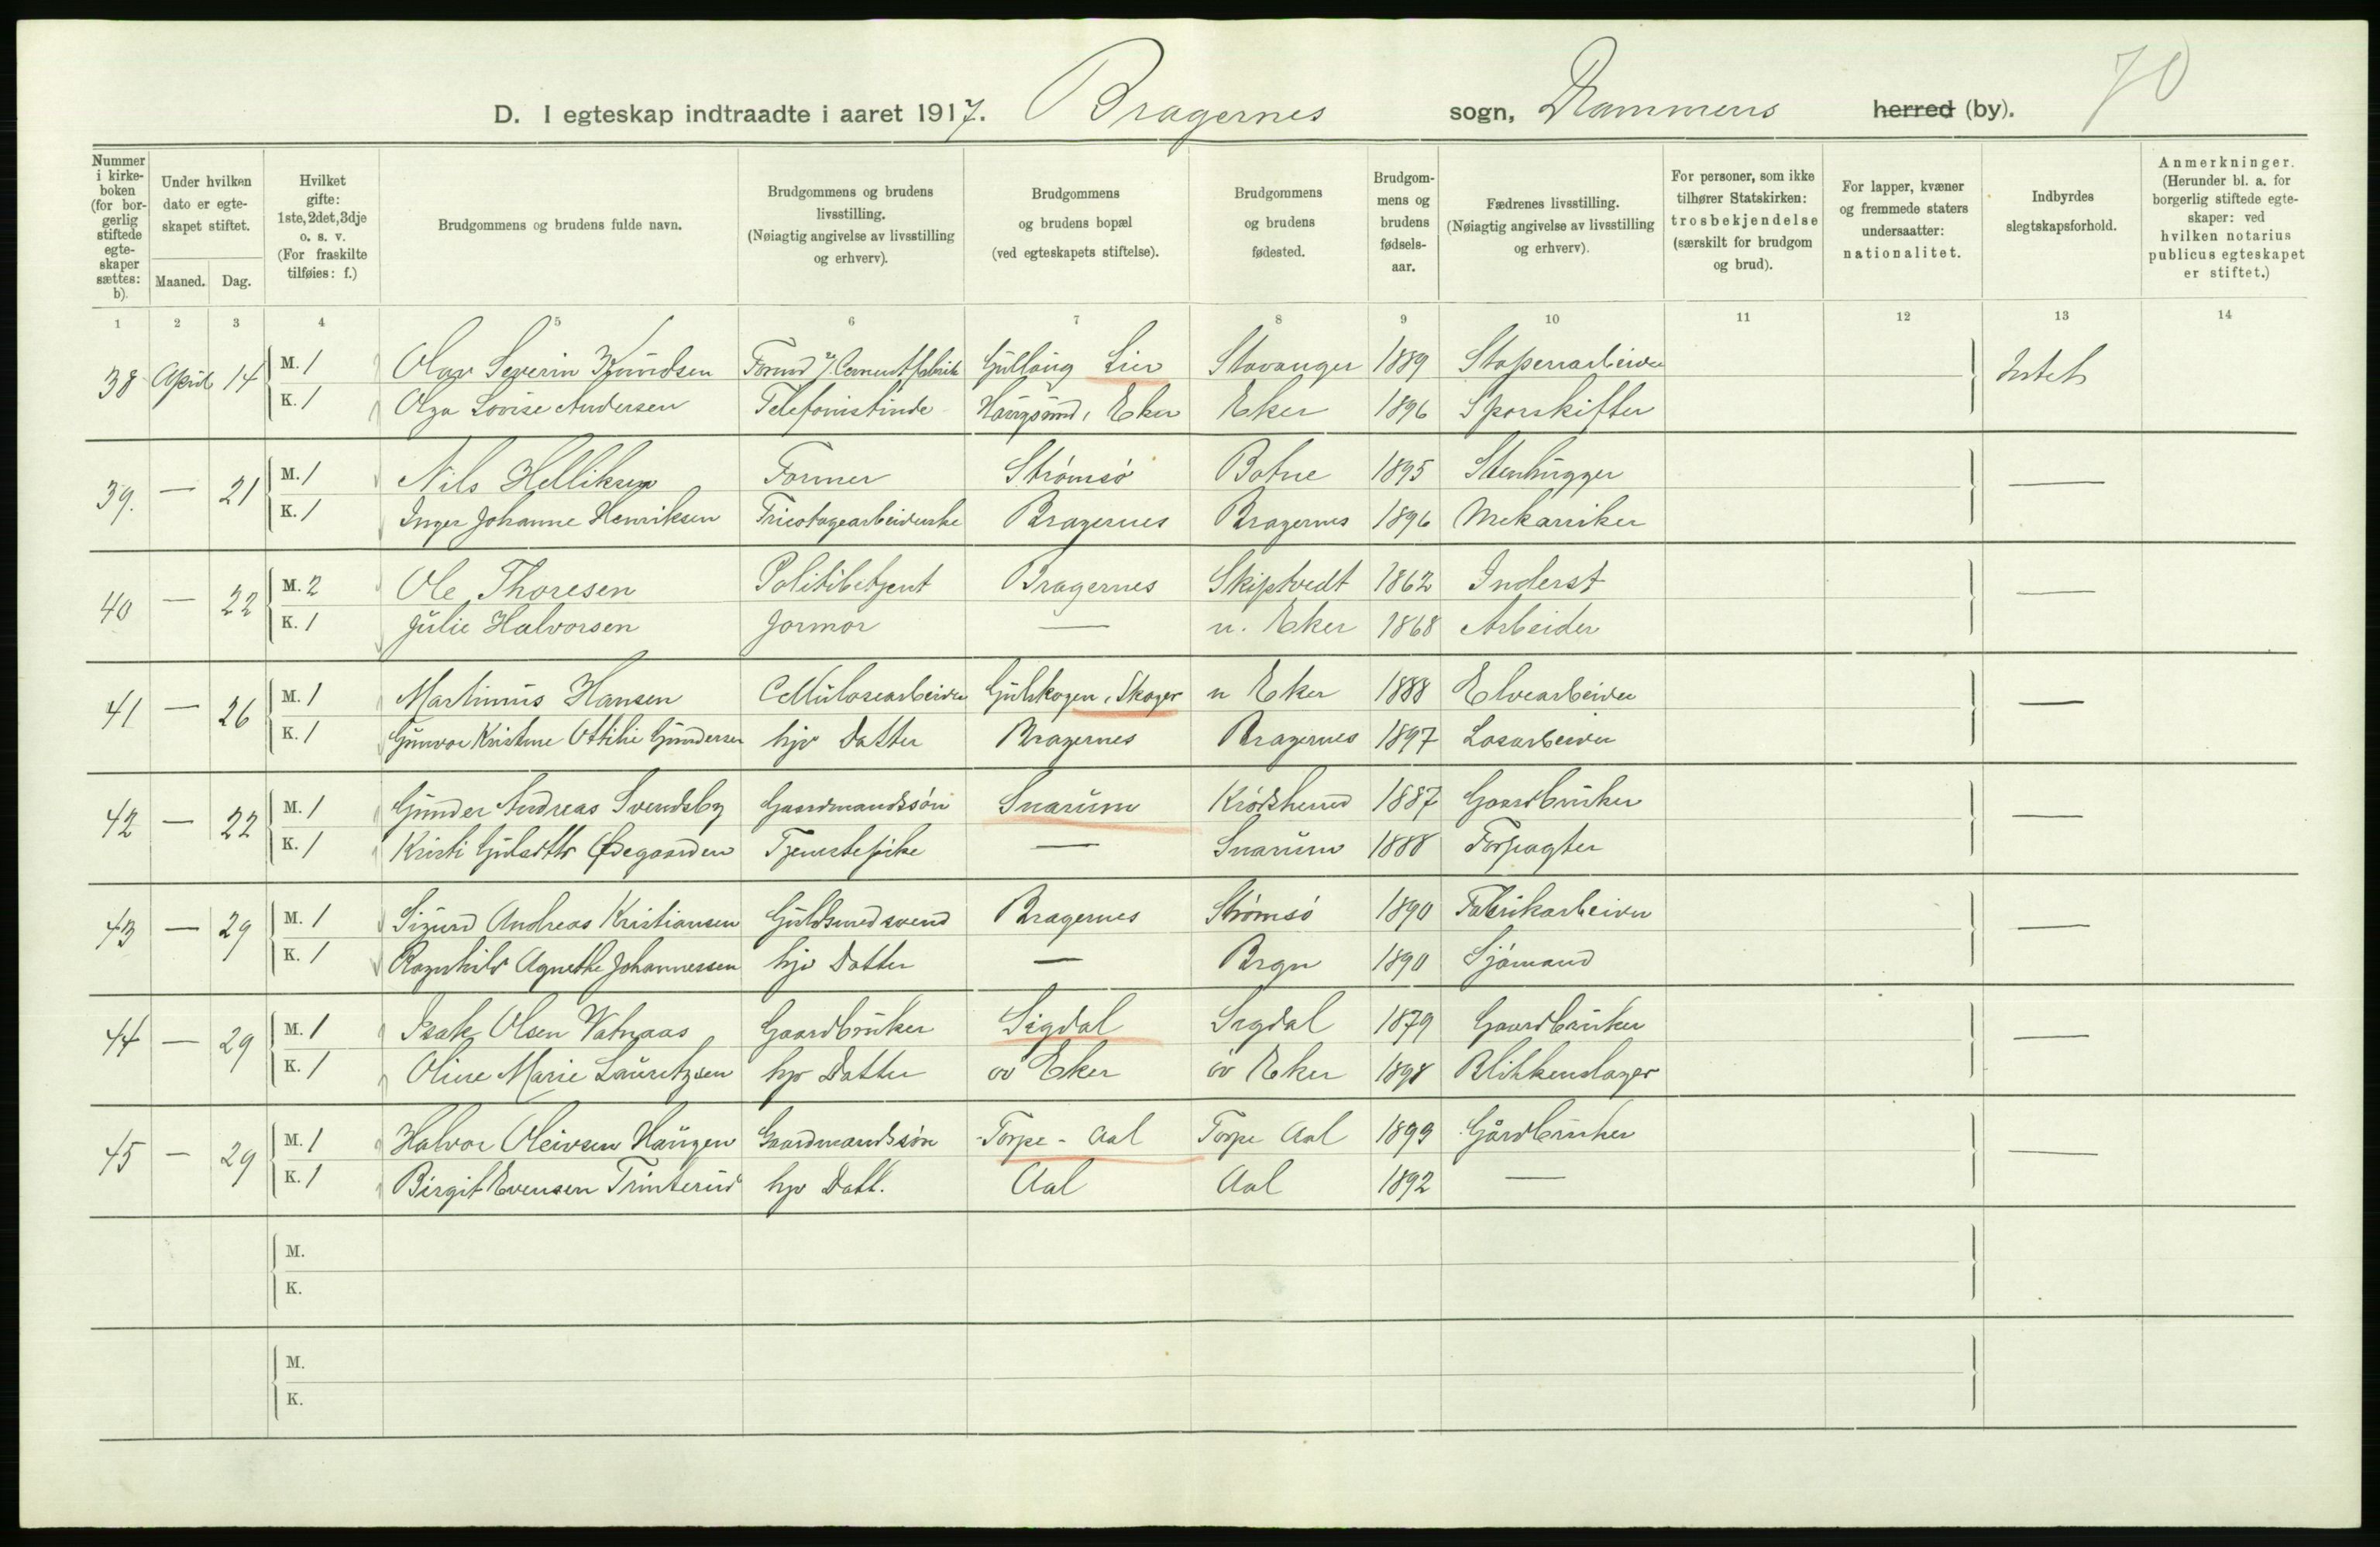 70
D. I egteskap indtraadte i aaret 1917. Bragernes sogn, Drammens herred (by).
Nummer i kirke-boken (for bor-gerlig stiftede egte-skaper sættes: b).
Under hvilken dato er egte-skapet stiftet.
Maaned. Dag.
Hvilket gifte: 1ste, 2det, 3dje o. s. v. (For fraskilte tilføies: f.)
Brudgommens og brudens fulde navn.
Brudgommens og brudens livsstilling. (Nøiagtig angivelse av livsstilling og erhverv).
Brudgommens og brudens bopæl (ved egteskapets stiftelse).
Brudgommens og brudens fødested.
Brudgom-mens og brudens fødsels-aar.
Fædrenes livsstilling. (Nøiagtig angivelse av livsstilling og erhverv).
For personer, som ikke tilhører Statskirken: trosbekjendelse (særskilt for brudgom og brud).
For lapper, kvæner og fremmede staters undersaatter: nationalitet.
Indbyrdes slegtskapsforhold.
Anmerkninger. (Herunder bl. a. for borgerlig stiftede egte-skaper: ved hvilken notarius publicus egteskapet er stiftet.)
1 2 3 4 5 6 7 8 9 10 11 12 13 14
38 April 14 M. 1 Olav Severin Knudsen Formd v/ Cementfabrik Gullaug Lier Stavanger 1889 Intet
K. 1 Olga Lovise Andersen Telefonistinde Haugsund, Eker Eker 1896 Sporskifter
39. — 21 M. 1 Nils Helliksen Former Strømsö Botne 1895 Stenhugger —
K. 1 Inger Johanne Henriksen Tricotagearbeiderske Bragernes Bragernes 1896 Mekaniker
40 — 22 M. 2 Ole Thoresen Politibetjent Bragernes Skiptvedt 1862 Inderst —
K. 1 Julie Halvorsen Jormor — n. Eker 1868 Arbeider
41 — 26 M. 1 Martinius Hansen Cellulosearbeider Gulskogen, Skoger n Eker 1888 Elvearbeider —
K. 1 Gunvor Kristine Ottilie Gundersen hjv Datter Bragernes Bragernes 1897 Losarbeider
42 — 22 M. 1 Gunder Andreas Svendsby Gaardmandssön Snarum Krödsherred 1887 Gaardbruker —
K. 1 Kristi Ødegaarden Tjenestepike — Snarum 1888 Forpagter
43 — 29 M. 1 Sigurd Andreas Kristiansen Guldsmedsvend Bragernes Strömsö 1890 Fabrikarbeider —
K. 1 Ragnhild Agnethe Johannessen hjv Datter — Brgn 1890 Sjömand
44 — 29 M. 1 Isak Olsen Vatnaas Gaardbruker Sigdal Sigdal 1879 Gaardbruker —
K. 1 Oline Marie Lauritzsen hjv Datter öv Eker öv Eker 1898 Blikkenslager
45 — 29 M. 1 Halvor Oleivsen Haugen Gaardmandssön Torpe - Aal Torpe Aal 1893 Gårdbruker —
K. 1 Birgit Evensen Trinterud hjv Datt. Aal Aal 1892 —
M.
K.
M.
K.